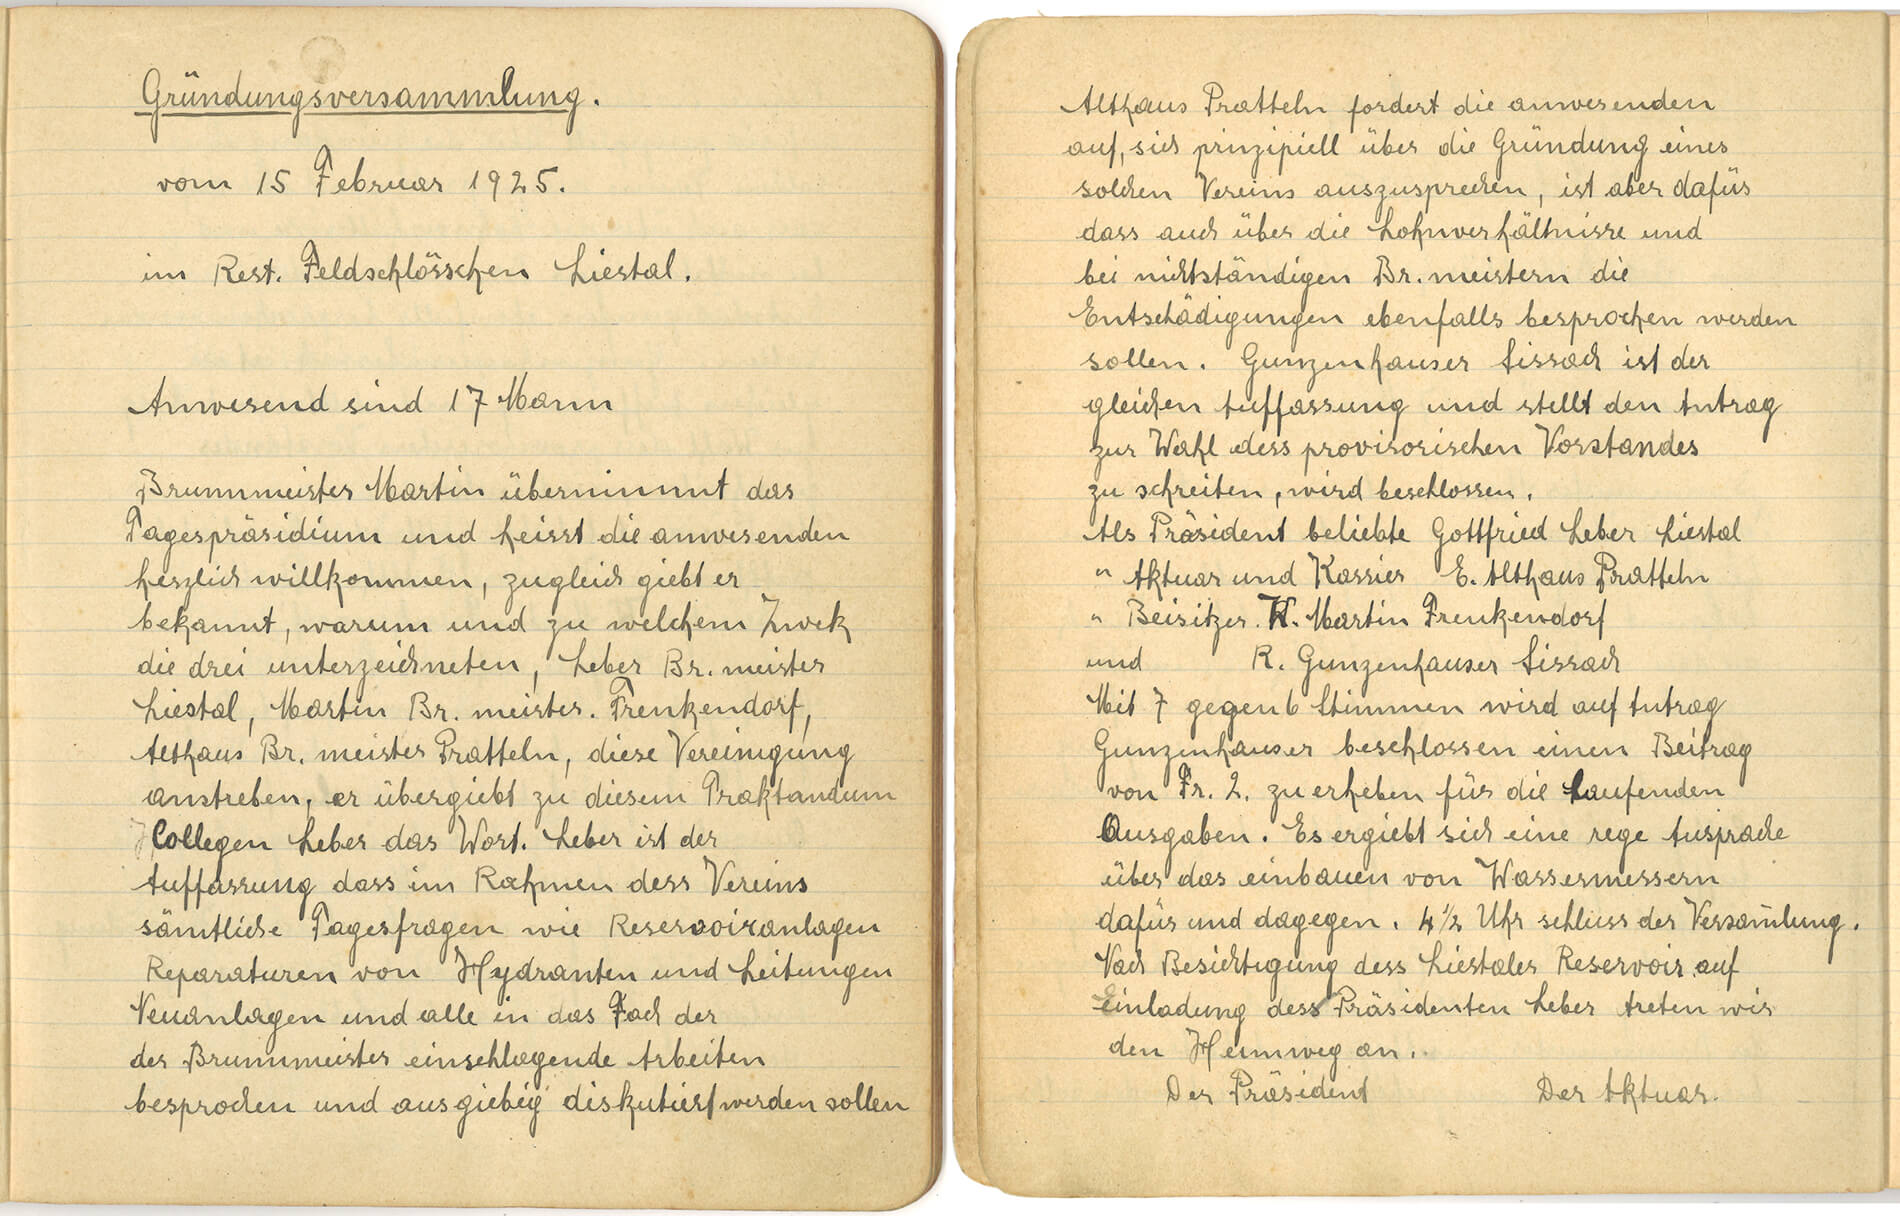 Gründungsversammlung.
vom 15 Februar 1925.
im Rest. Feldschlösschen Liestal.
Anwesend sind 17 Mann
Brunnmeister Martin übernimmt das
Tagespräsidium und heisst die anwesenden
herzlich willkommen, zugleich giebt er
bekannt, warum und zu welchem Zwek
die drei unterzeichneten, Leber Br. meister
Liestal, Martin Br. meister. Frenkendorf,
Althaus Br. meister Pratteln, diese Vereinigung
anstreben, er übergiebt zu diesem Traktandum
Collegen Leber das Wort. Leber ist der
Auffassung dass im Rahmen dess Vereins
sämtliche Tagesfragen wie Reservoiranlagen
Reparaturen von Hydranten und Leitungen
Neuanlagen und alle in das Fach der
der Brunnmeister einschlagende Arbeiten
besprochen und ausgiebig diskutiert werden sollen
Althaus Pratteln fordert die anwesenden
auf, sich prinzipiell über die Gründung eines
solchen Vereins auszusprechen, ist aber dafür
dass auch über die Lohnverhältnisse und
bei nichtständigen Br. meistern die
Entschädigungen ebenfalls besprochen werden
sollen. Gunzenhauser Sissach ist der
gleichen Auffassung und stellt den Antrag
zur Wahl dess provisorischen Vorstandes
zu schreiten, wird beschlossen.
Als Präsident beliebte Gottfried Leber Liestal
" Aktuar und Kassier E. Althaus Pratteln
" Beisitzer. K. Martin Frenkendorf
und R. Gunzenhauser Sissach
Mit 7 gegen 6 Stimmen wird auf Antrag
Gunzenhauser beschlossen einen Beitrag
von Fr. 2. zu erheben für die laufenden
Ausgaben. Es ergiebt sich eine rege Aussprache
über das einbauen von Wassermessern
dafür und dagegen. 4 1/2 Uhr schluss der Versam̄lung.
Nach Besichtigung dess Liestaler Reservoir auf
Einladung dess Präsidenten Leber treten wir
den Heimweg an.
Der Präsident Der Aktuar.